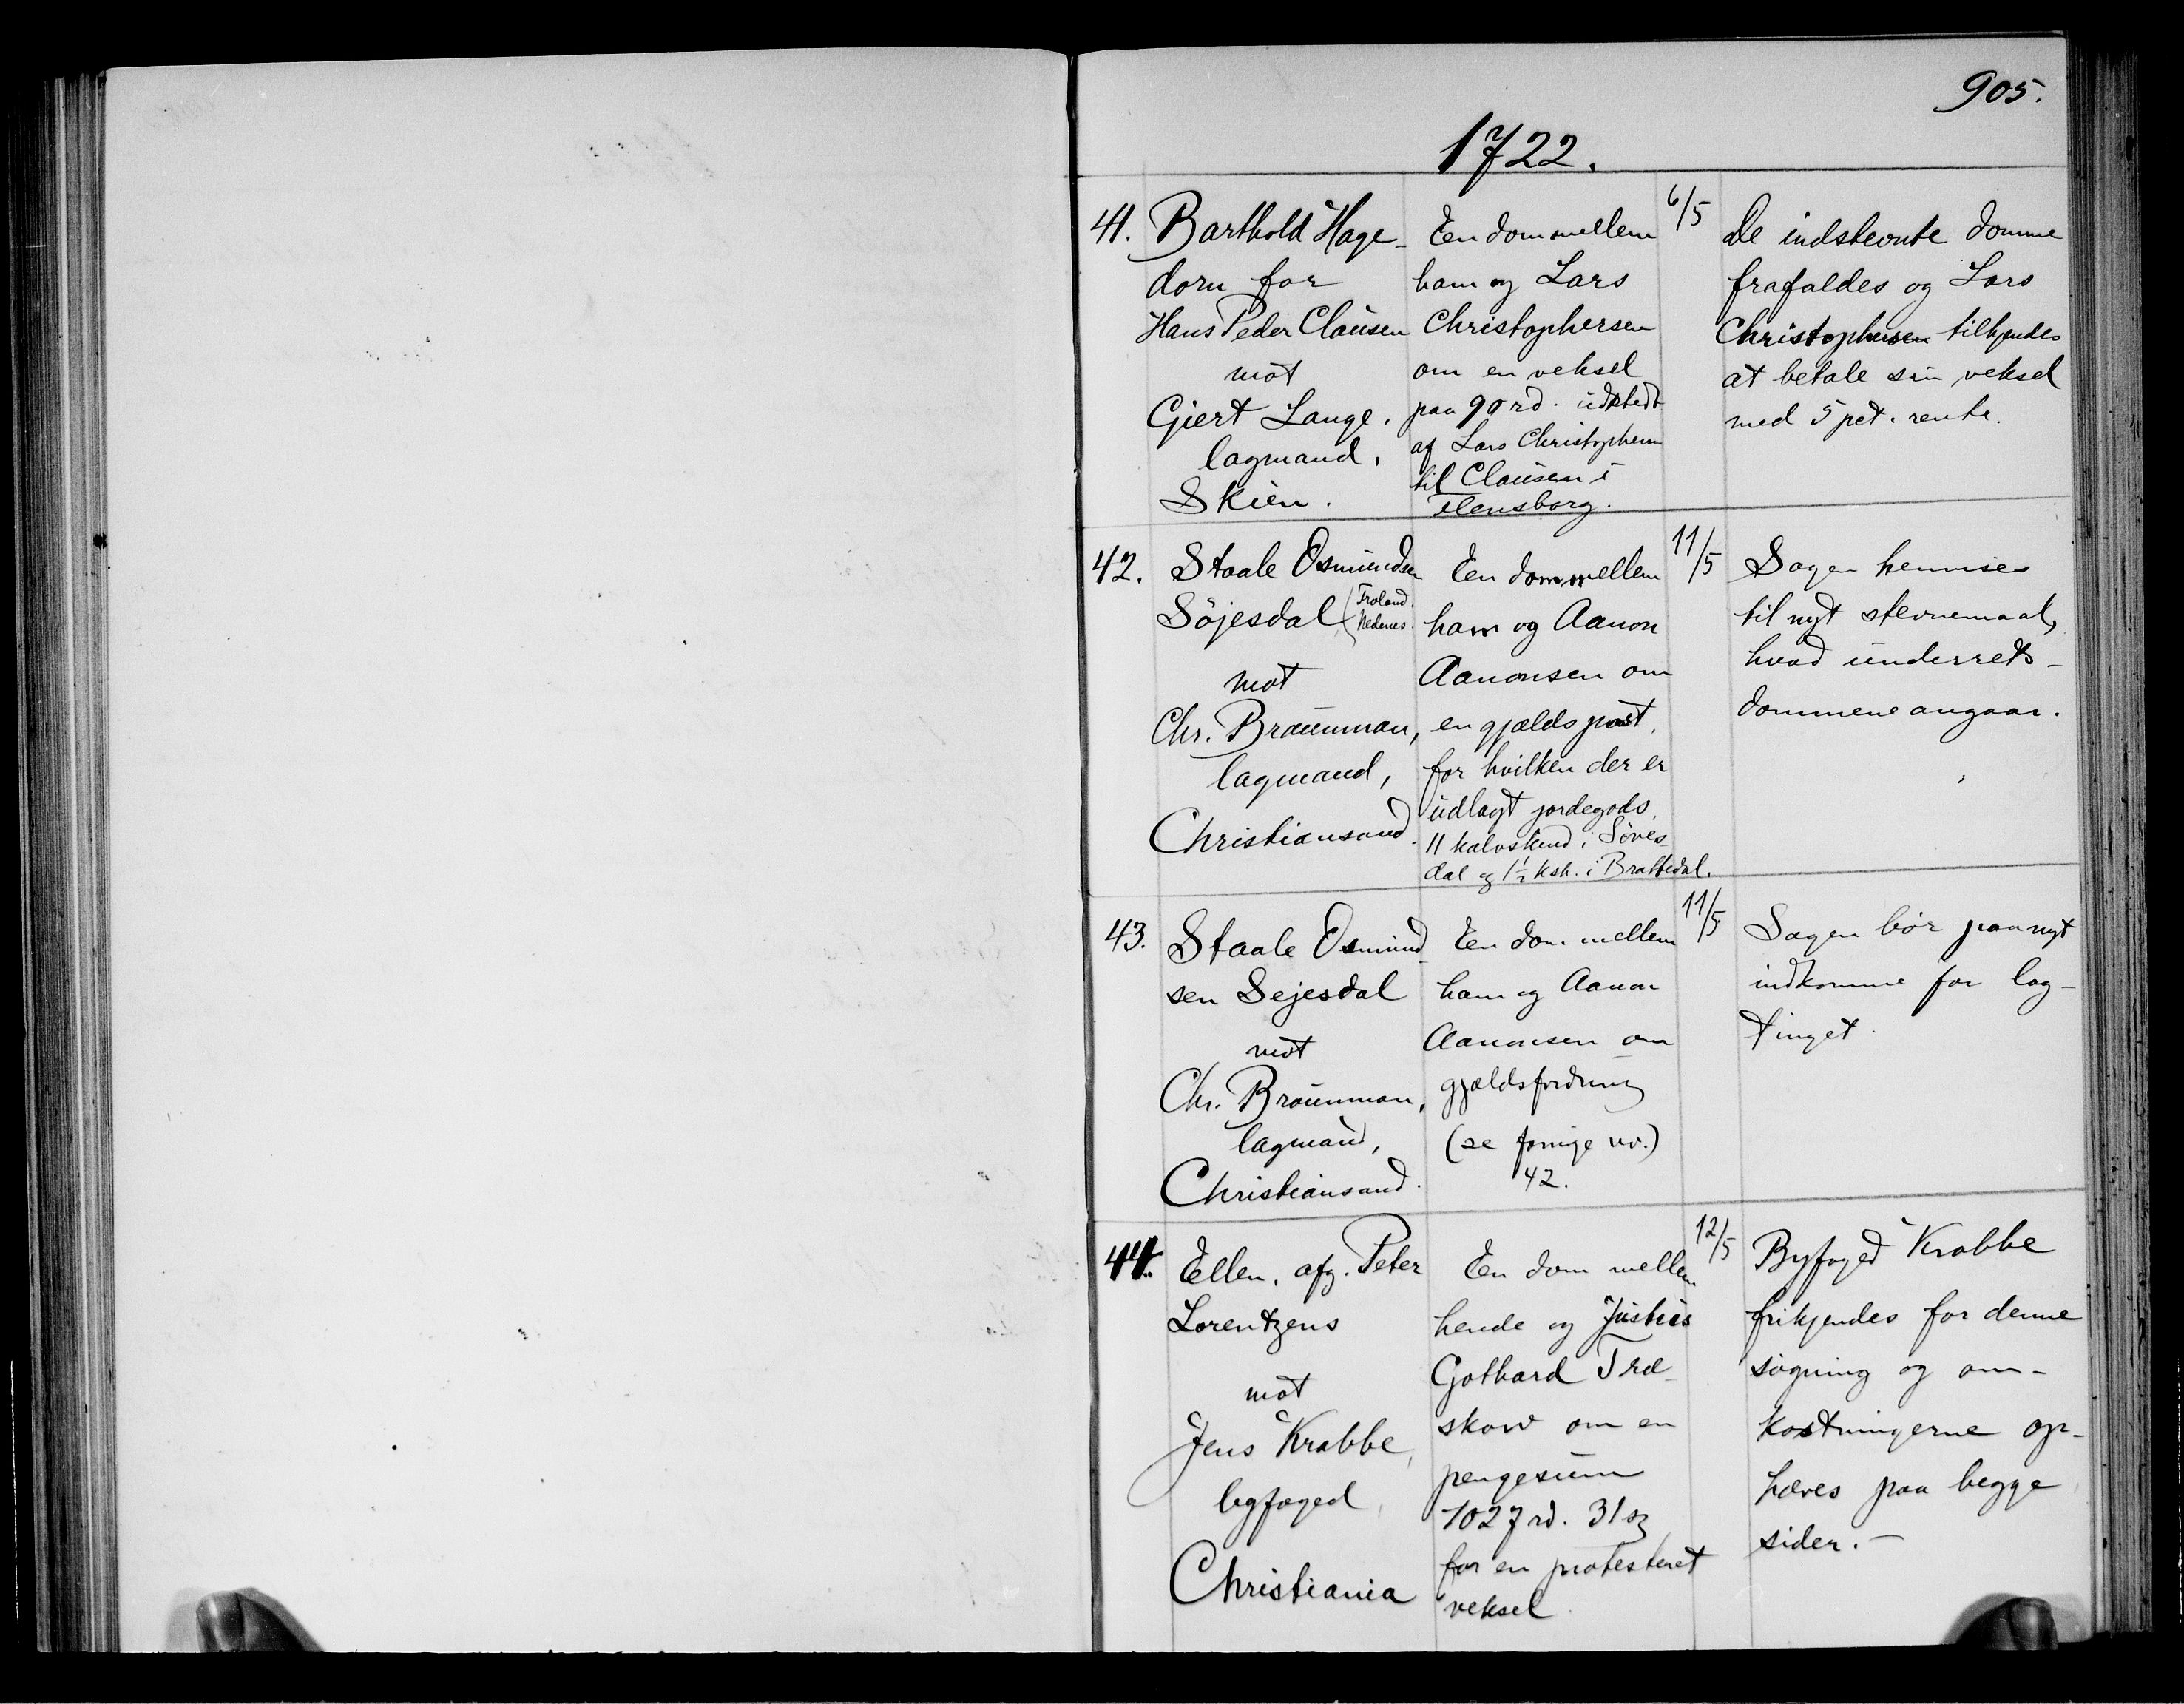 905.
1722.
41.
Barthold Hage-
dorn for
Hans Peder Clausen
mot
Giert Lange,
lagmand,
Skien.
En dom mellem
ham og Lars
Christophersen
om en veksel
paa 90 rd. udstedt
af Lars Christophersen
til Clausen i
Flensborg.
6/5
De indstevnte domme
frafaldes og Lars
Christophersen tilkjendes
at betale sin veksel
med 5 pct. rente.
42.
Staale Osmundsen
Söjesdal (Froland.
Nedenes.
mot
Chr. Braunman,
lagmand,
Christiansand.
En dom mellem
ham og Aanon
Aanonsen om
en gjældspost,
for hvilken der er
udlagt jordegods,
11 kalvskind i Söves-
dal og 1½ ksk. i Brattedal.
11/5
Sagen henvises
til nyt stevnemaal,
hvad underrets-
dommene angaar.
43.
Staale Osmund-
sen Sejesdal
mot
Chr. Braunman,
lagmand,
Christiansand.
En dom mellem
ham og Aanon
Aanonsen om
gjældsfordring
(se forrige nr.)
42.
11/5
Sagen bör paa nyt
indkomme for lag-
tinget.
44.
Ellen, afg. Peter
Lorentzens
mot
Jens Krabbe,
byfoged,
Christiania
En dom mellem
hende og Justus
Gothard Træ-
skow om en
pengesum
1027 rd. 31 sz
for en protesteret
veksel.
12/5
Byfoged Krabbe
frikjendes for denne
sögning og om-
kostningerne op-
hæves paa begge
sider. -